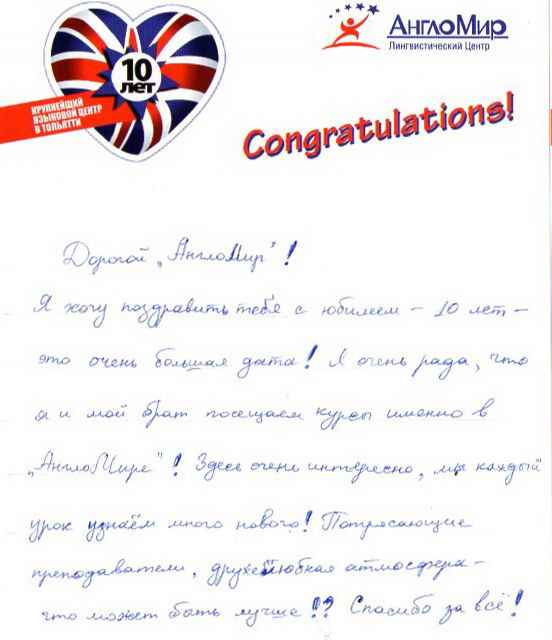 10
лет
КРУПНЕЙШИЙ
ЯЗЫКОВОЙ ЦЕНТР
В ТОЛЬЯТТИ
АнглоМир
Лингвистический Центр
Congratulations!
Дорогой „АнглоМир"!
Я хочу поздравить тебя с юбилеем – 10 лет –
это очень большая дата! Я очень рада, что
я и мой брат посещаем курсы именно в
„АнглоМире"! Здесь очень интересно, мы каждый
урок узнаём много нового! Потрясающие
преподаватели, дружелюбная атмосфера –
что может быть лучше!? Спасибо за всё!